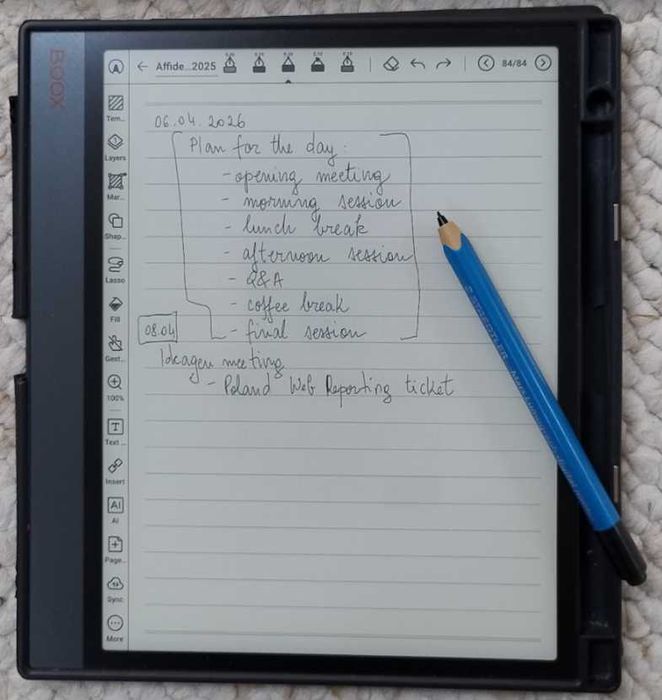 BOOX
Affide...2025
84/84
Tem...
Layers
Mar...
Shap...
Lasso
Fill
Gest...
100%
Text ...
Insert
AI
AI
Page...
Sync
More
06.04.2026
Plan for the day:
- opening meeting
- morning session
- lunch break
- afternoon session
- Q&A
- coffee break
08.04 - final session
Ideagen meeting
- Poland Web Reporting ticket